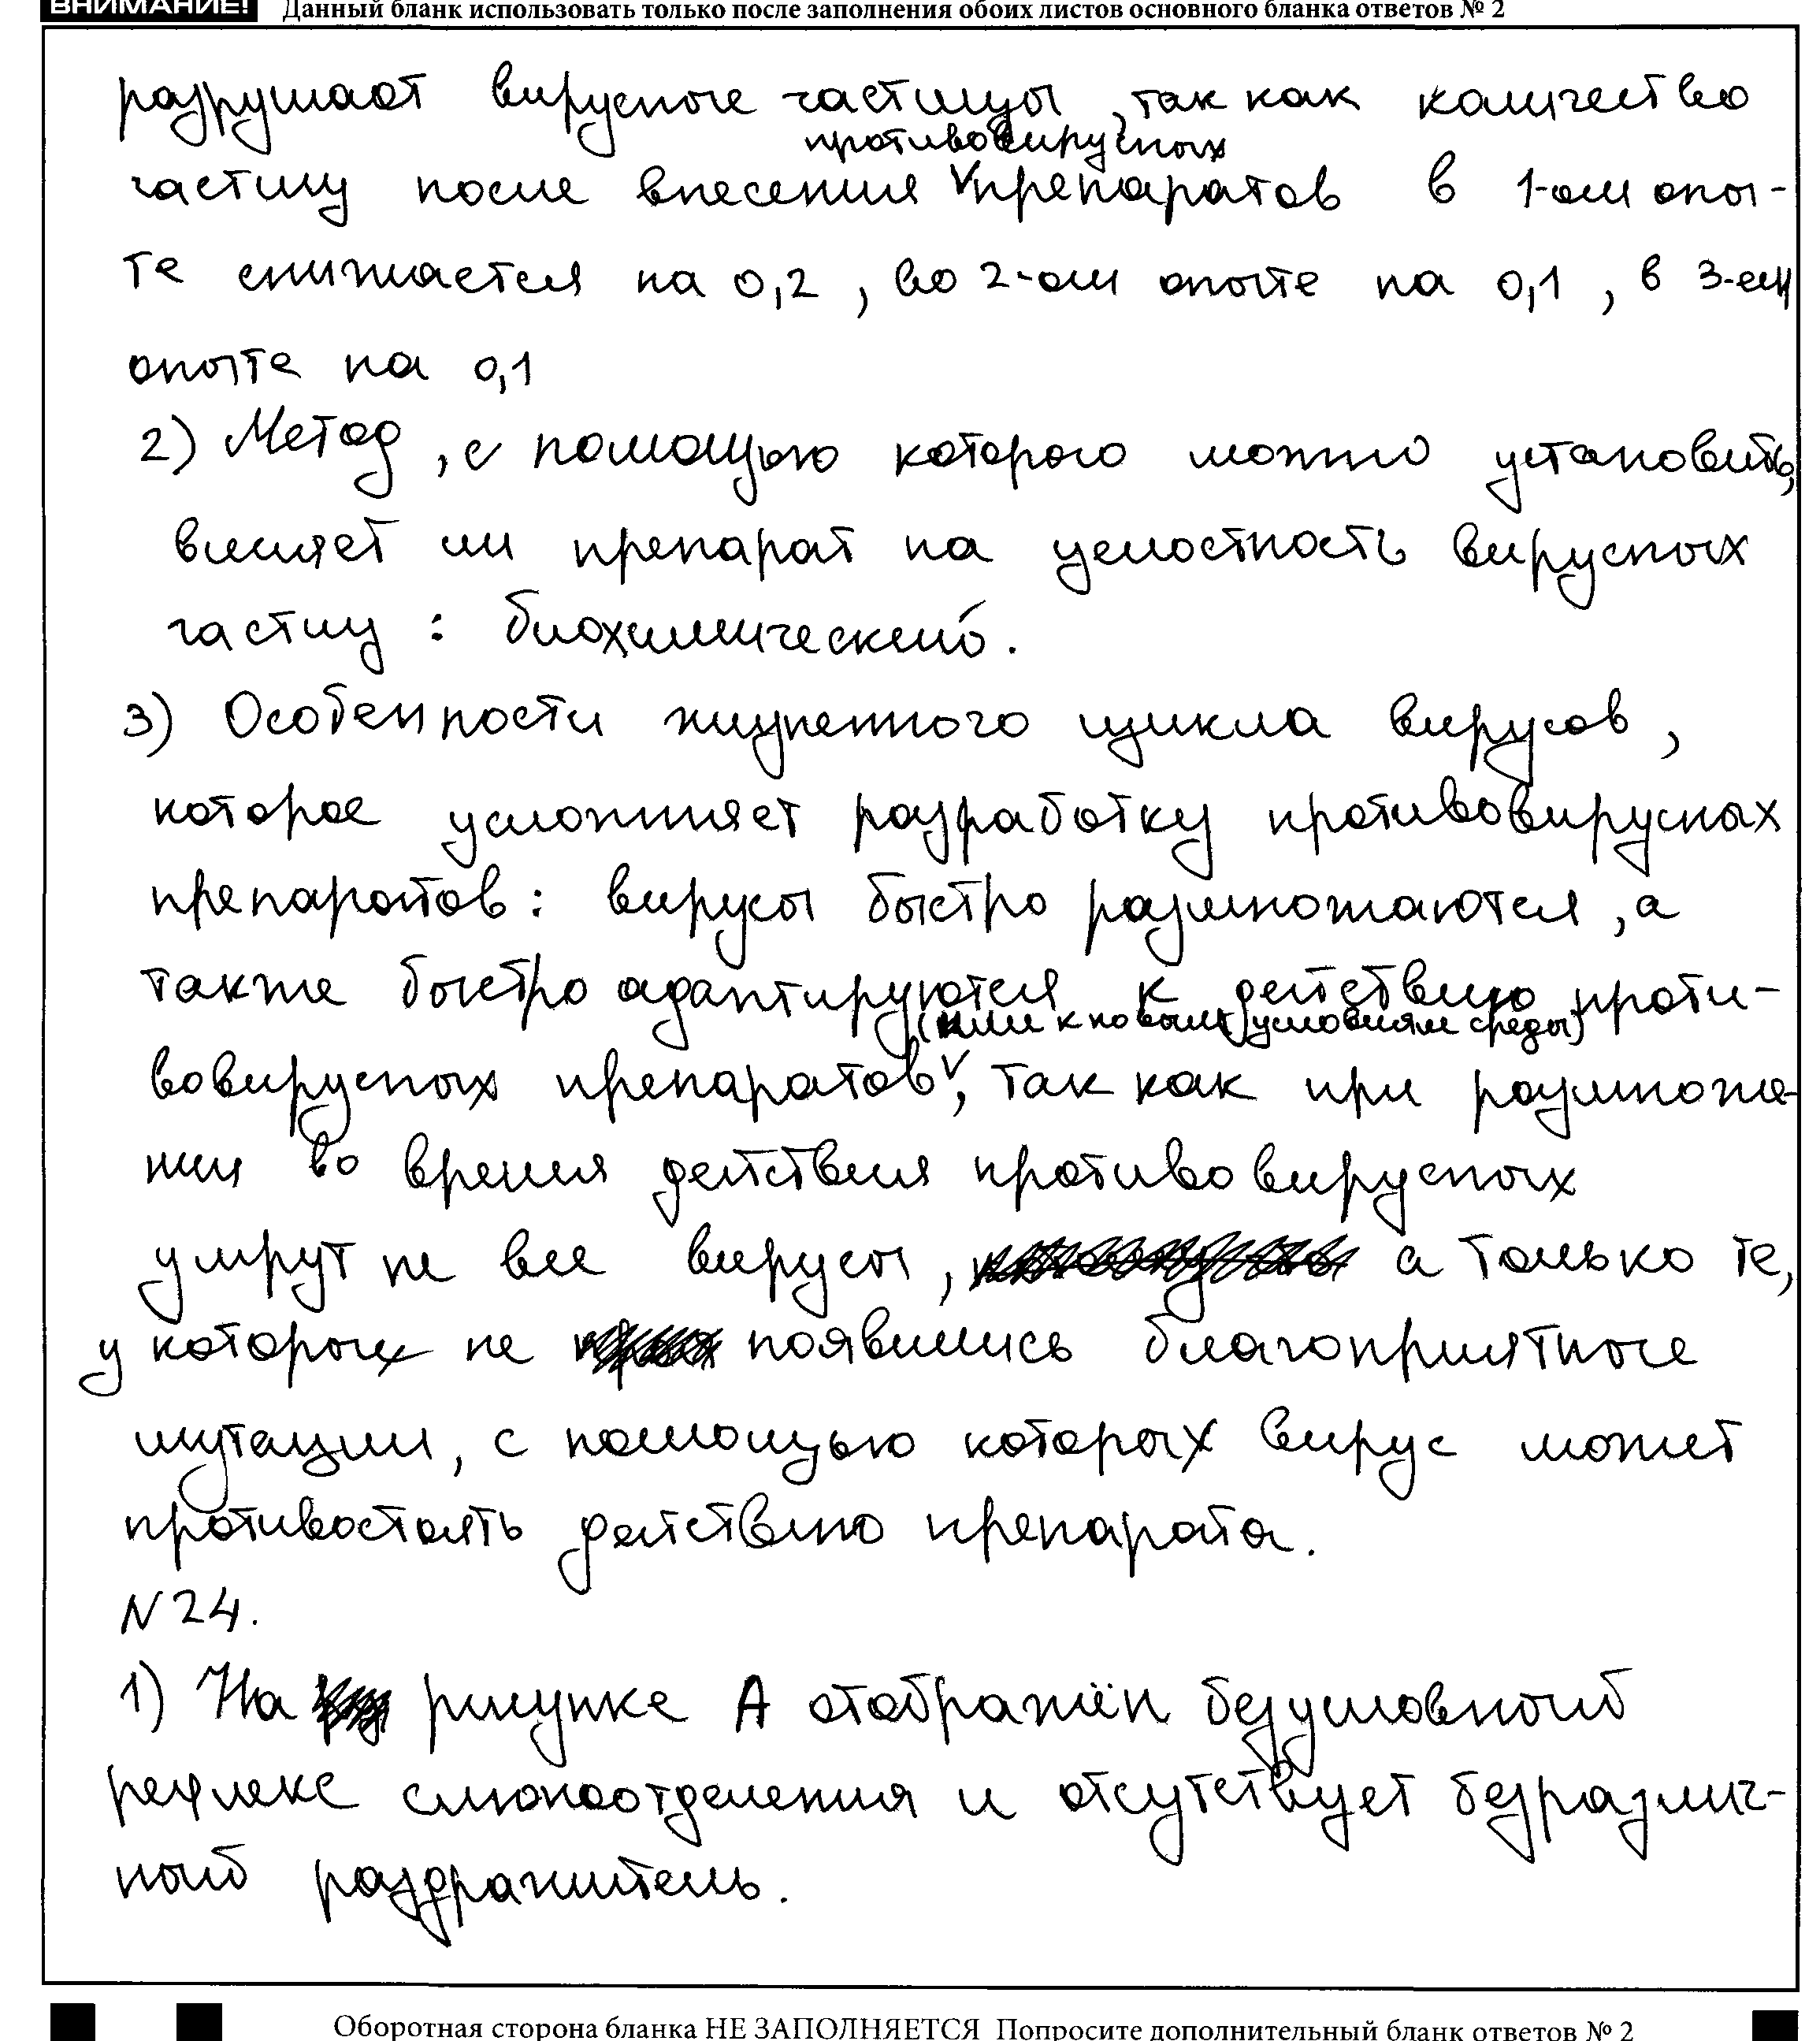 ВНИМАНИЕ! Данный бланк использовать только после заполнения обоих листов основного бланка ответов № 2
разрушают вирусные частицы, так как количество
противовирусных
частиц после внесения препаратов в 1-ом опы-
те снижается на 0,2, во 2-ом опыте на 0,1, в 3-ем
опыте на 0,1
2) Метод, с помощью которого можно установить,
влияет ли препарат на целостность вирусных
частиц: биохимический.
3) Особенности жизненного цикла вирусов,
которое усложняет разработку противовирусных
препаратов: вирусы быстро размножаются, а
также быстро адаптируются к действию проти-
(или к новым условиям среды)
вовирусных препаратов, так как при размноже-
нии во время действия противовирусных
умрут не все вирусы, а только те,
у которых не появились благоприятные
мутации, с помощью которых вирус может
противостоять действию препарата.
N24.
1) На рисунке А отображён безусловный
рефлекс слюноотделения и отсутствует безразлич-
ный раздражитель.
Оборотная сторона бланка НЕ ЗАПОЛНЯЕТСЯ Попросите дополнительный бланк ответов № 2